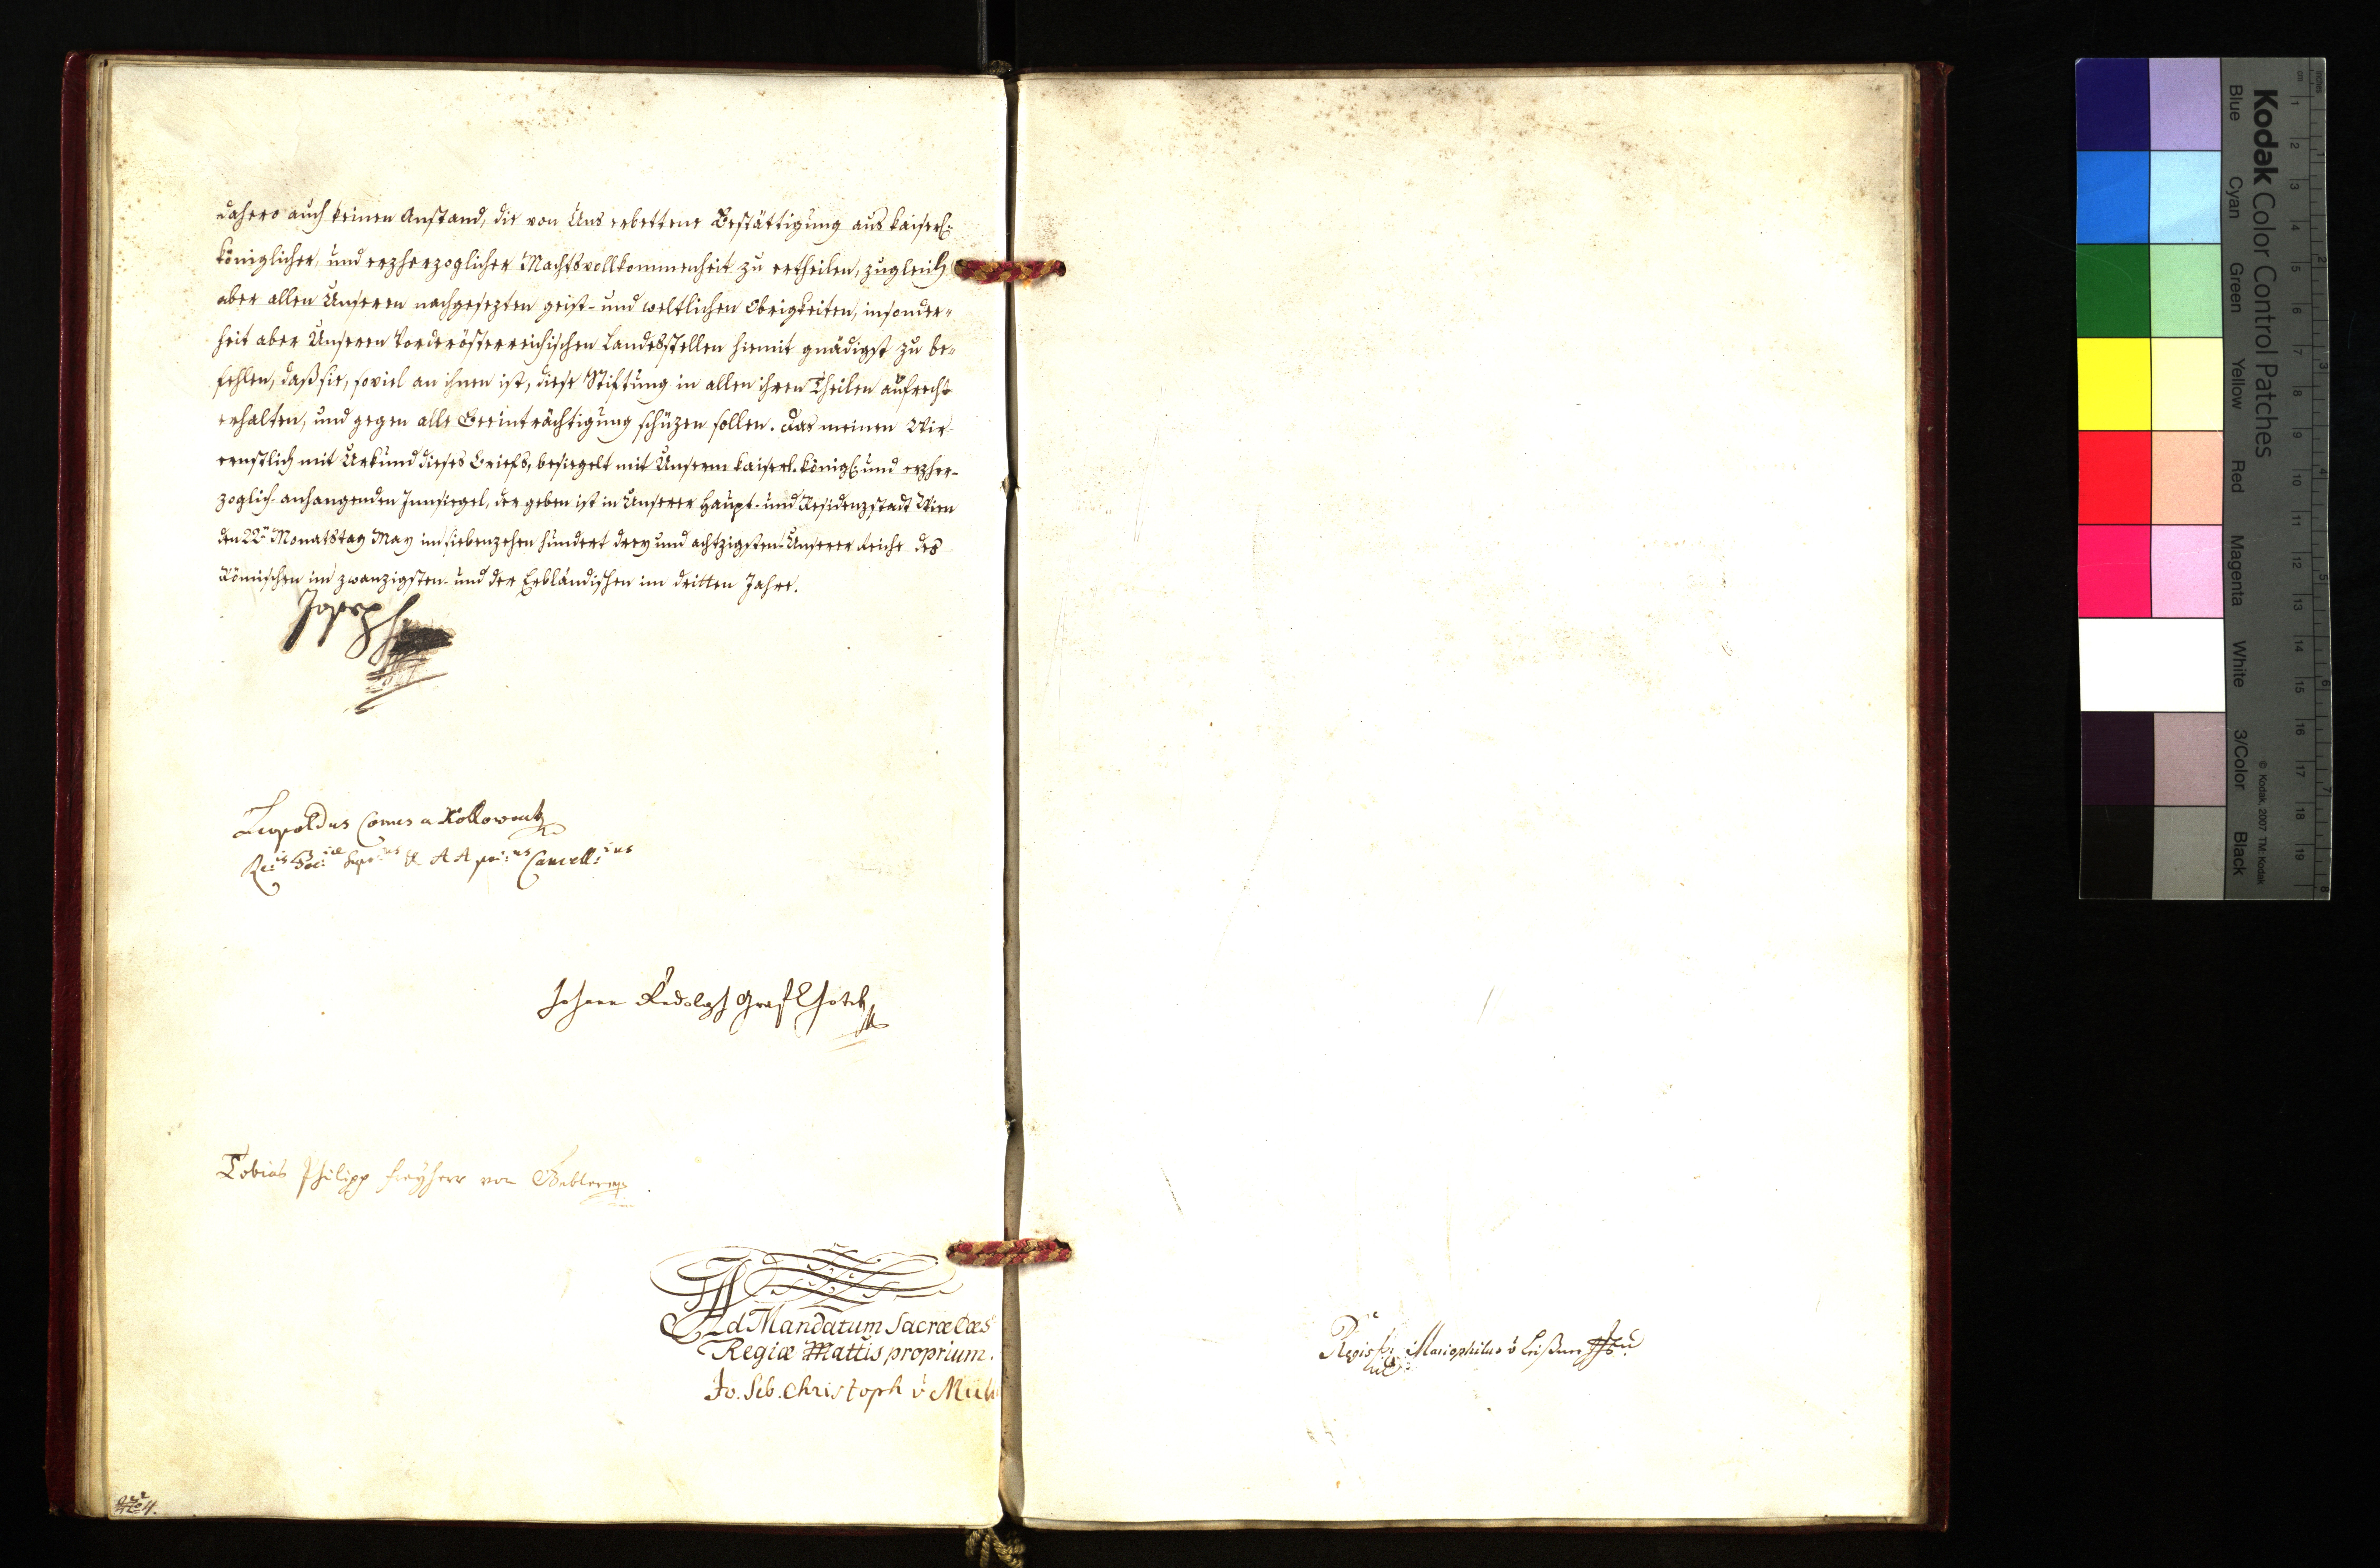 dahero auch keinen Anstand, die von Uns erbettene Bestättigung aus kaiserl:
königlicher, und erzherzoglicher Machtsvollkommenheit zu ertheilen, zugleich
aber allen Unseren nachgesezten geist- und weltlichen Obrigkeiten, insonder-
heit aber Unseren Vorderösterreichischen Landesstellen hiemit gnädigst zu be-
fehlen, daß sie, soviel an ihnen ist, diese Stiftung in allen ihren Theilen aufrecht
erhalten, und gegen alle Beeinträchtigung schüzen sollen. Das meinen Wir
ernstlich mit Urkund dieses Briefs, besiegelt mit Unserm kaiserl. königl: und erzher-
zoglich anhangenden Innsiegel, der geben ist in Unserer Haupt- und Residenzstadt Wien
den 22.ten Monatstag May im siebenzehen hundert drey und achtzigsten Unserer Reiche des
Römischen im zwanzigsten- und der Erbländischen im dritten Jahre.
Joseph
Leopoldus Comes a Kollowrath
Reg:is Boh:iae Sup:us & A A pri:us Cancell:ius
Johann Rudolph Graf Chotek
Tobias Philipp Freyherr von Gebler
Ad Mandatum Sacrae Caes
Regiae Mattis proprium.
Jo. Seb. Christoph v Mül
Regist:
Kodak Color Control Patches
Blue Cyan Green Yellow Red Magenta White 3/Color Black
© Kodak, 2007 TM: Kodak
inches
cm
1 2 3 4 5 6 7 8 9 10 11 12 13 14 15 16 17 18 19
1 2 3 4 5 6 7 8